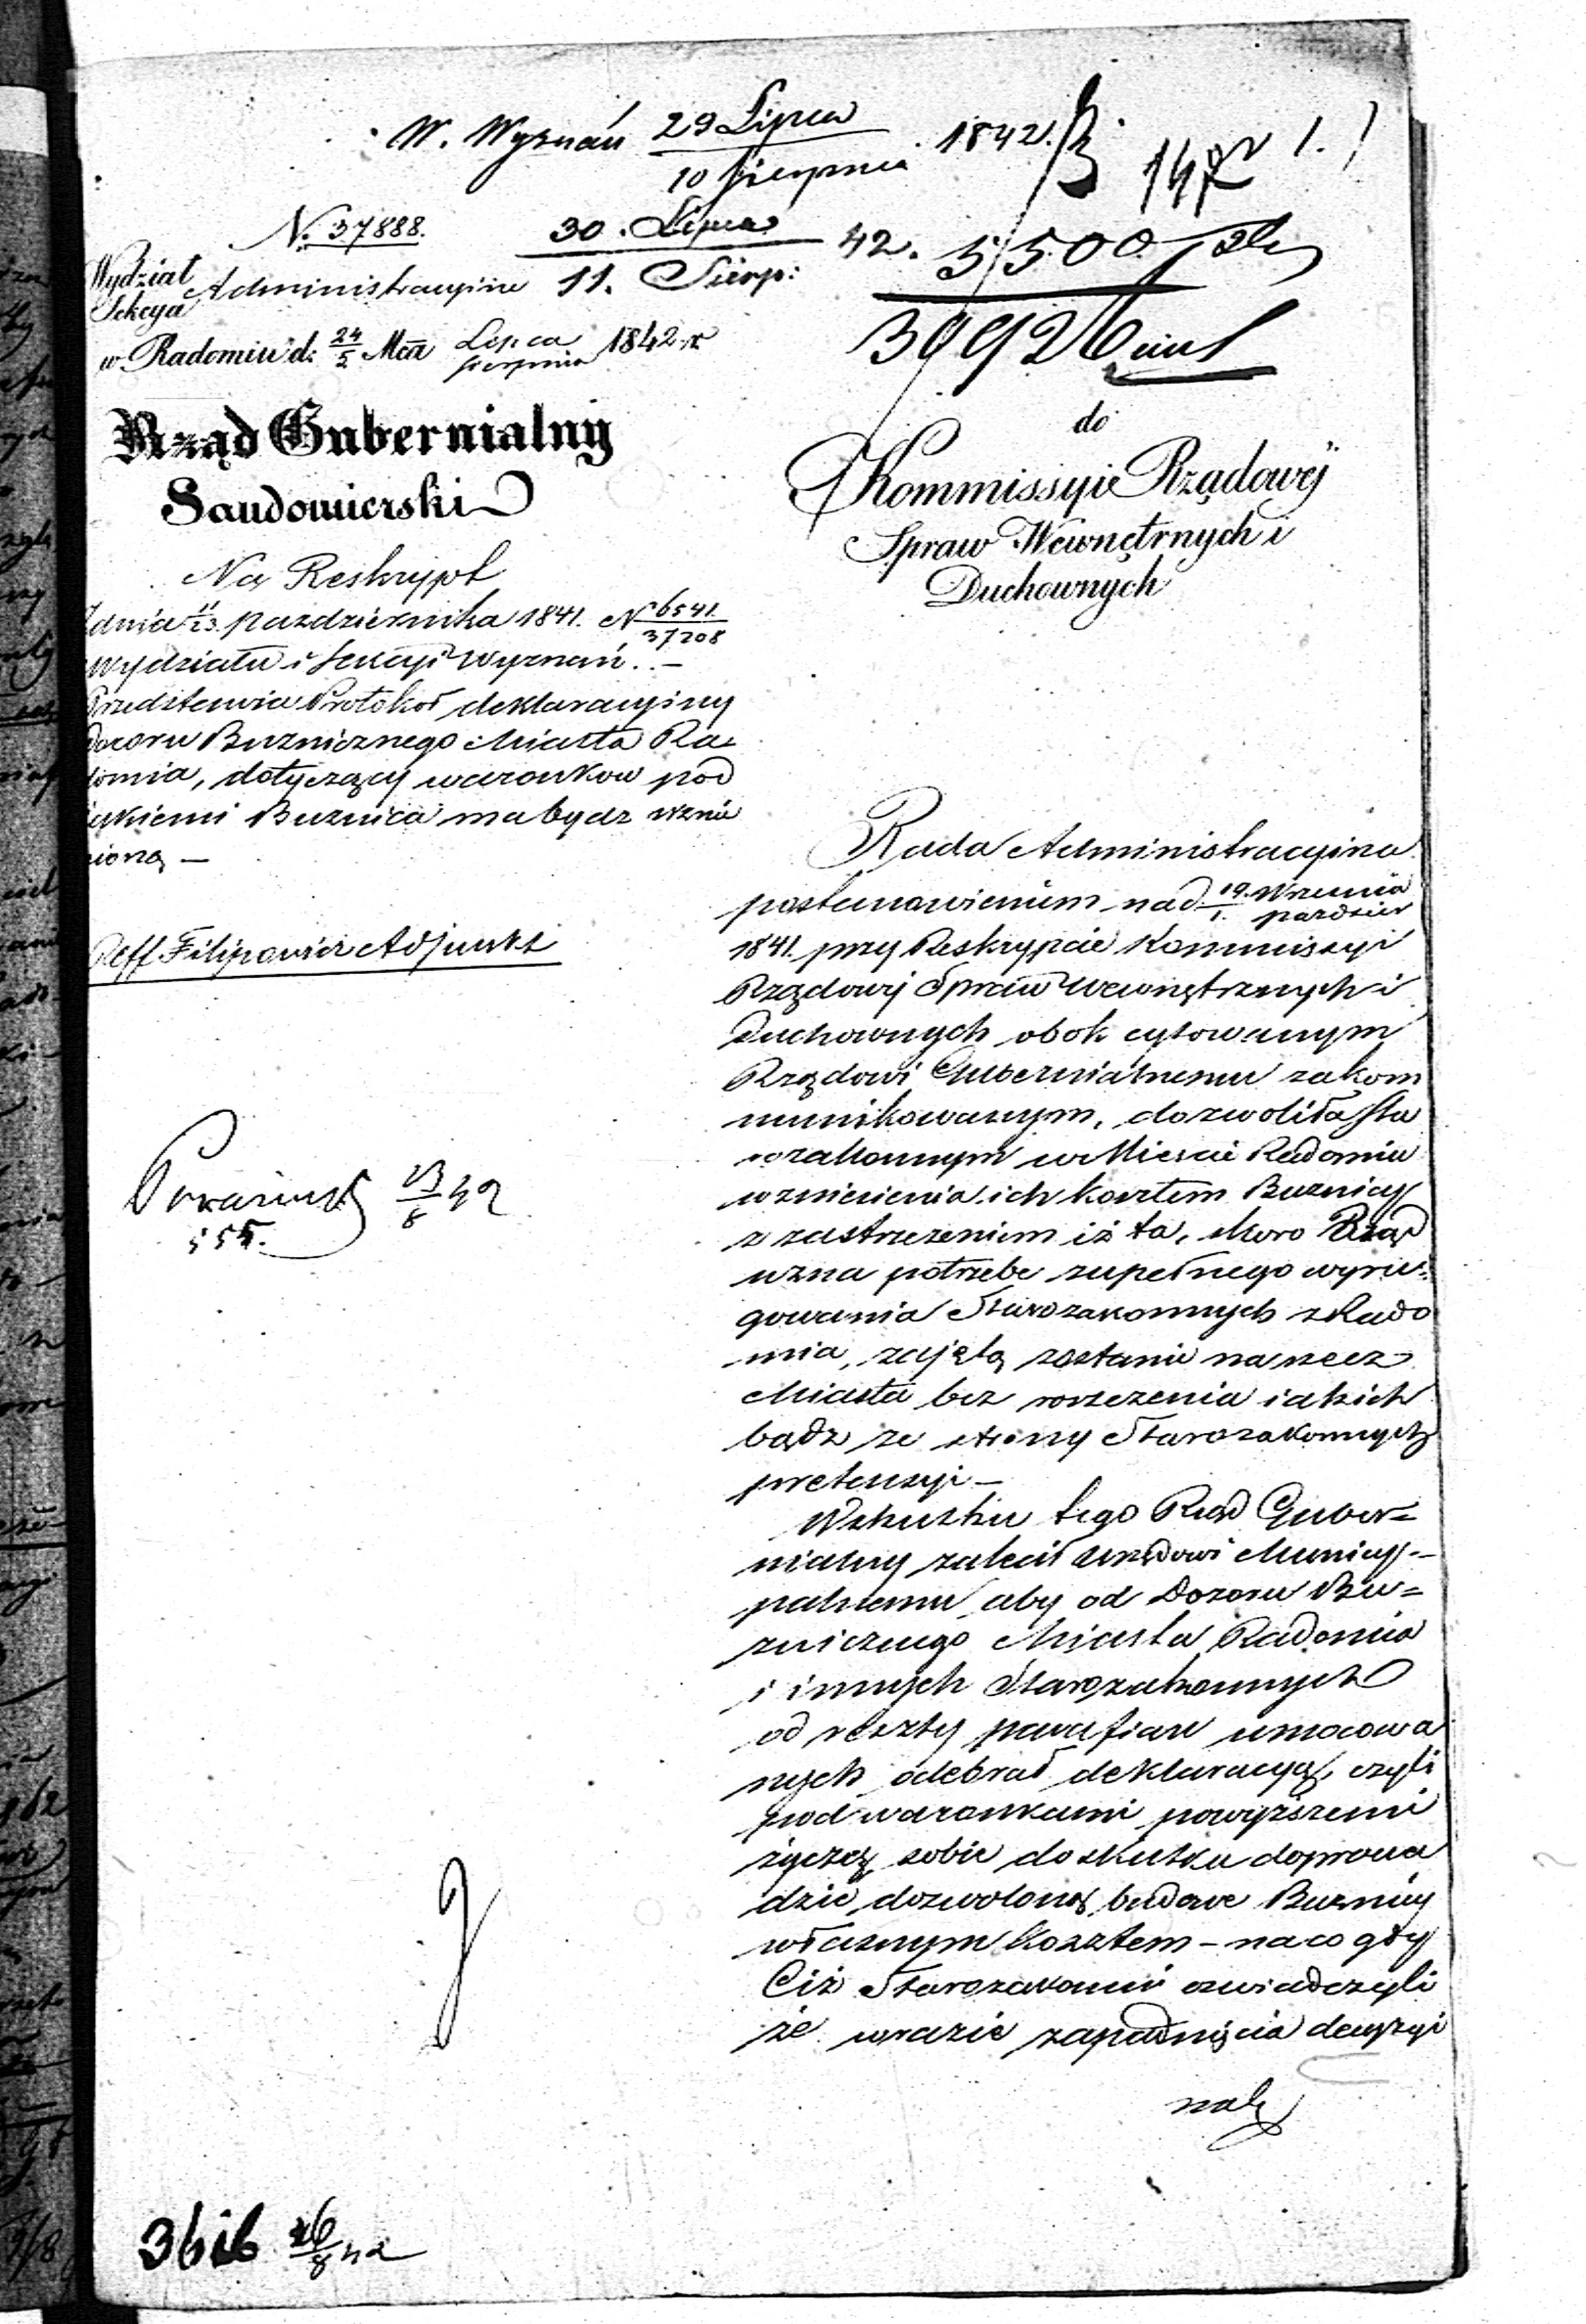 W. Wyznań 29 Lipca 1842.
10 Sierpnia
147
No. 37888.
30. Lipca 42.
11. Sierp:
5500
39926
Wydział
Sekcya Administracyina
w Radomiu d: 24/5 Mca Lipca/Sierpnia 1842 r
Rząd Gubernialny
Sandomierski
Na Reskrypt
zdnia 11/23. pazdziernika 1841. N 6541./37208
Wydziału i Sekcyi Wyznań. –
Przedstawia Protokoł deklaracyiny
Dozoru Buzniczego Miasta Ra-
domia, dotyczący warunkow pod
iakiemi Buznica ma bydz wznie
sioną –
Reff. Filipowicz Adjunkt
13/8 42
555.
do
Kommissyie Rządowéj
Spraw Wewnętrnych i
Duchownych
Rada Administracyina
postanowieniem nad 19. Wrzesnia/1. pazdzier
1841. przy Reskrypcie Kommissyi
Rządowej Spraw Wewnętrznych i
Duchownych obok cytowanym
Rządowi Gubernialnemu zakom
munikowanym, dozwoliła Sta
rozakonnym w Miescie Radomiu
wzniesienia ich kosztem Buznicy
z zastrzezeniem iż ta, skoro Rząd
uzna potrzebe zupełnego wyru-
gowania Starozakonnych z Rado
mia, zajętą zostanie na rzecz
Miasta bez roszczenia iakich
bądz ze strony Starozakonnych
pretensyi –
Wskutku tego Rząd Guber=
nialny zalecił Urzędowi Municy-
palnemu aby od Dozoru Bu=
zniczego Miasta Radomia
i innych Starozakonnych
od reszty parafian umocowa
nych odebrał deklaracyą, czyli
pod warunkami powyższemi
życzą sobie do skutku doprowa
dzic dozwoloną budowe Buznicy
własnym kosztem – na co gdy
Ciż Starozakonni oswiadczyli
że w razie zapadnięcia decyzyi
26/8 42